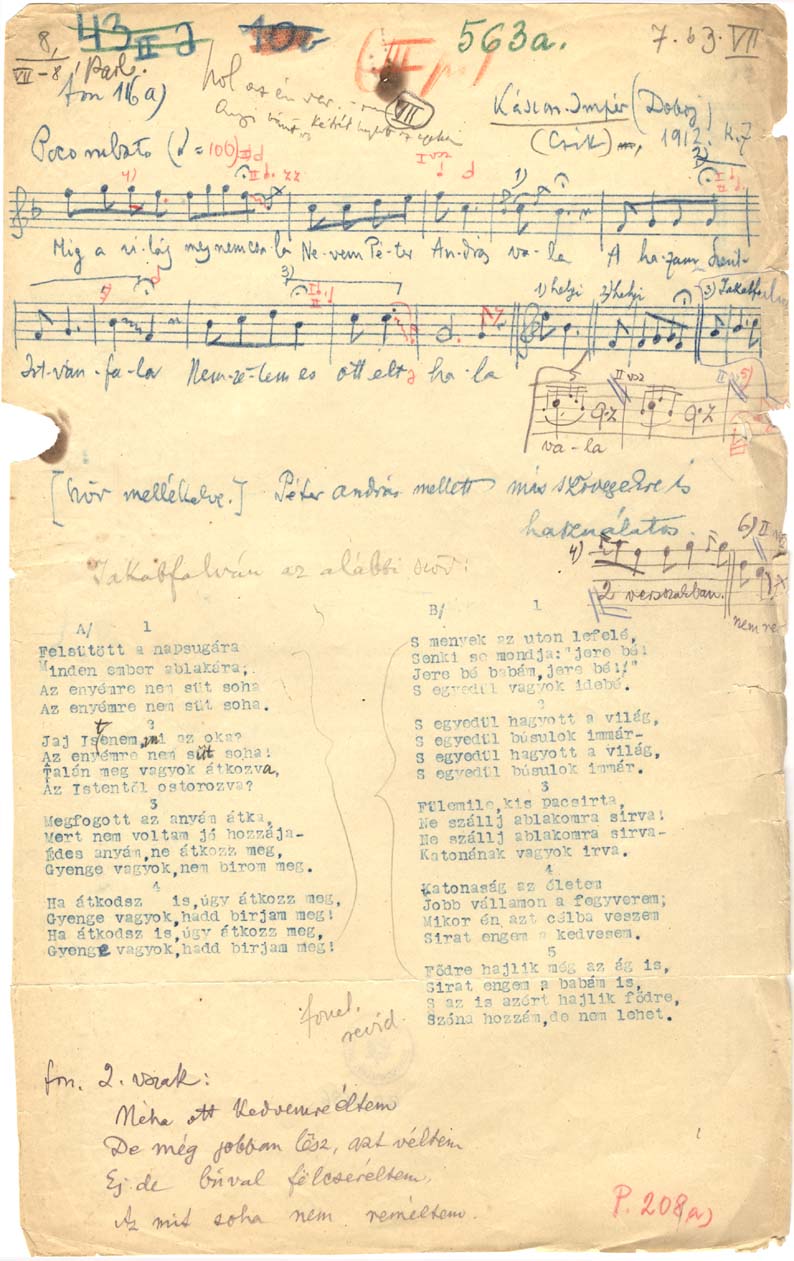 8,
VII-8
43 II
10
III
563a.
7. b3. VII
fon 116a)
hol az én
VII
Kászon-Impér (Doboj)
(Csík), 1912.
Poco rubato (♩ = 100)
Mig a vi-lág meg nem csa-la Ne-vem Pé-ter An-drás va-la A ha-zam Szent-
1) helyi 2) helyi 3) Jakabfalva
Ist-ván-fa-la Nem-ze-tem es ott élt s ha-la
II vsz
va-la
[Szöv mellékelve.] Péter András mellett más szövegekre is
használatos.
Jakabfalván az alábbi szöv:
4)
6) II
2 versszakban.
A/ 1
Felsütött a napsugára
Minden ember ablakára;
Az enyémre nem süt soha
Az enyémre nem süt soha.
2
Jaj Istenem, mi az oka?
Az enyémre nem süt soha!
Talán meg vagyok átkozva,
Az Istentől ostorozva?
3
Megfogott az anyám átka,
Mert nem voltam jó hozzája-
Édes anyám, ne átkozz meg,
Gyenge vagyok, nem birom meg.
4
Ha átkodsz is, úgy átkozz meg,
Gyenge vagyok, hadd birjam meg!
Ha átkodsz is, úgy átkozz meg,
Gyenge vagyok, hadd birjam meg!
B/ 1
S menyek az uton lefelé,
Senki se mondja: "jere bé!
Jere bé babám, jere bé!!"
S egyedül vagyok idebé.
2
S egyedül hagyott a világ,
S egyedül búsulok immár-
S egyedül hagyott a világ,
S egyedül búsulok immár.
3
Fülemile, kis pacsirta,
Ne szállj ablakomra sirva!
Ne szállj ablakomra sirva-
Katonának vagyok irva.
4
Katonaság az életem
Jobb vállamon a fegyverem;
Mikor én azt célba veszem
Sirat engem a kedvesem.
5
Födre hajlik még az ág is,
Sirat engem a babám is,
S az is azért hajlik födre,
Szóna hozzám, de nem lehet.
fonel.
revid.
fon. 2. vszak:
Néha ott kedvemre éltem
De még jobban lősz, azt véltem
Ej de búval fölcseréltem,
Az mit soha nem reméltem.
P. 208(a)